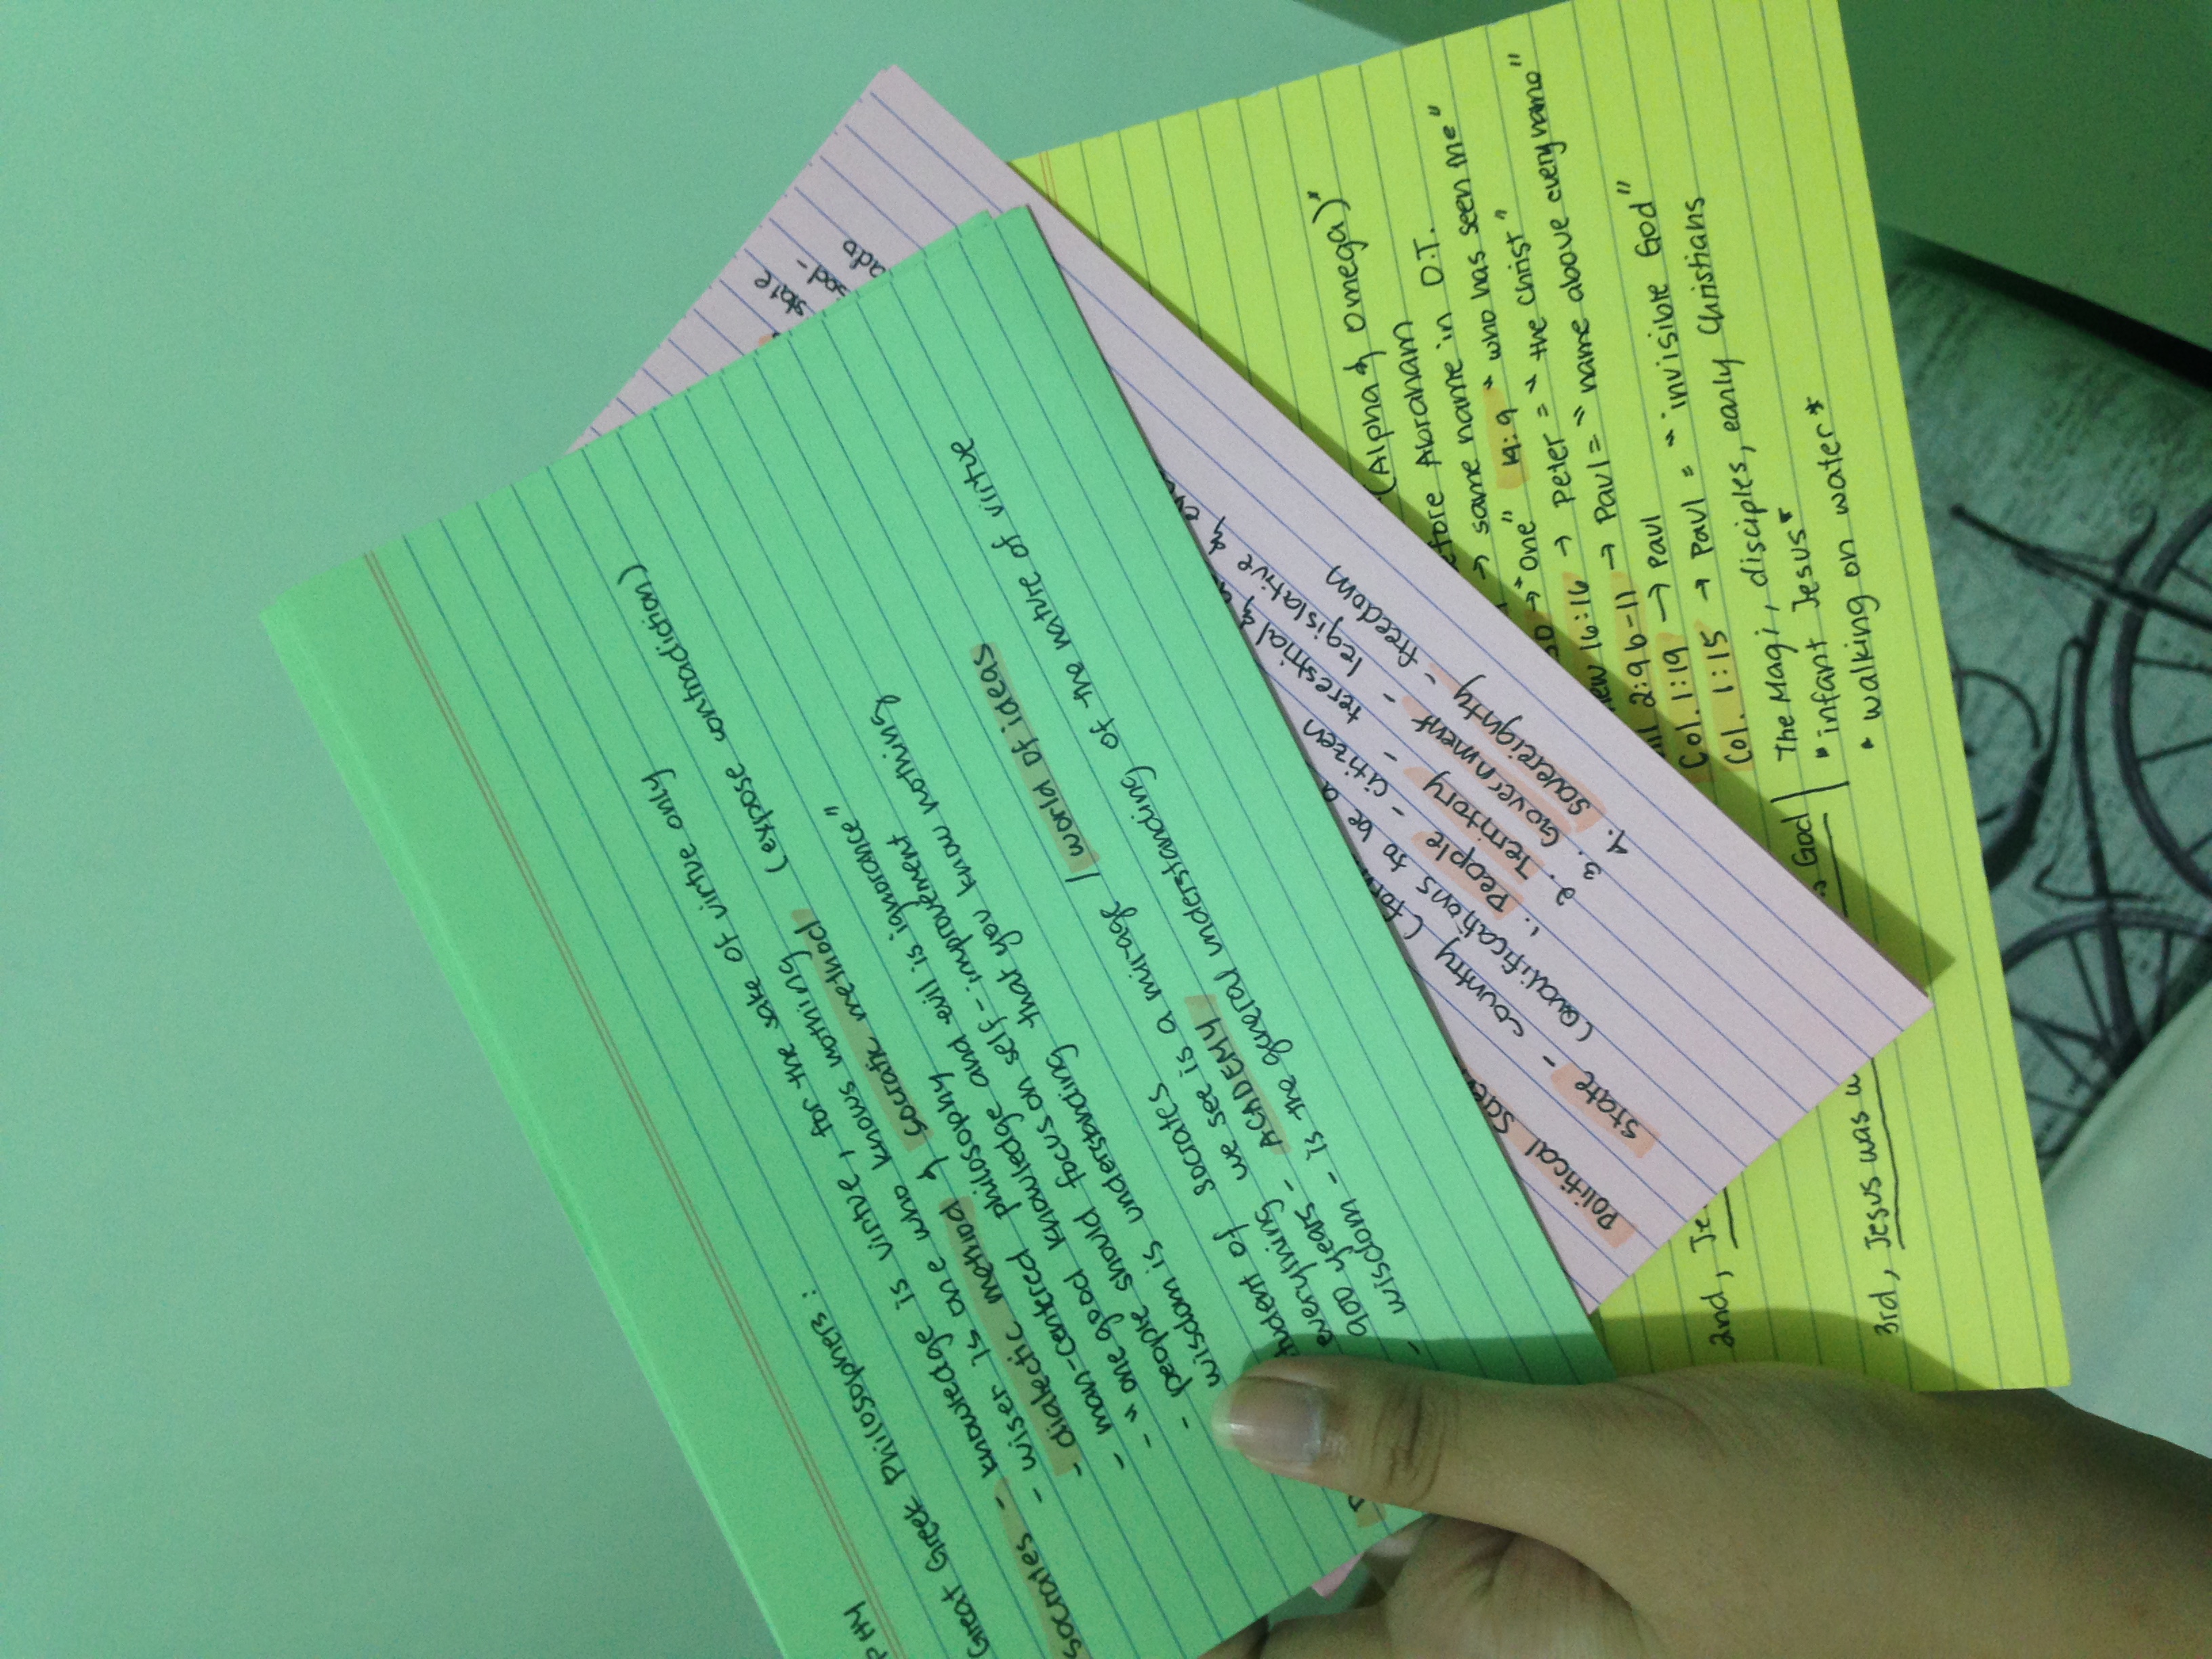 PHY
Great Greek Philosophers :
Socrates - knowledge is virtue, for the sake of virtue only
- wiser is one who knows nothing
- dialectic method & Socratic method (expose contradiction)
- man-centered philosophy
- "one good knowledge and evil is ignorance"
- people should focus on self-improvement
wisdom is understanding that you know nothing
student of Socrates
everything we see is a mirage / world of ideas
900 years - ACADEMY
- wisdom - is the general understanding of the nature of virtue
state
sod -
ado
Political
State - country
(Qualifications to be a
1. People - citizen
2. Territory -
3. Government - legislative &
4. Sovereignty - freedom
(Alpha & Omega)"
Abraham
→ same name in O.T.
→ "one" 14:9 "who has seen me"
16:16 → Peter = "the Christ"
2:9b-11 → Paul = "name above every name"
Col. 1:19 → Paul
Col. 1:15 → Paul = "invisible God"
2nd, God
The Magi, disciples, early Christians
"infant Jesus"
* walking on water *
3rd, Jesus was